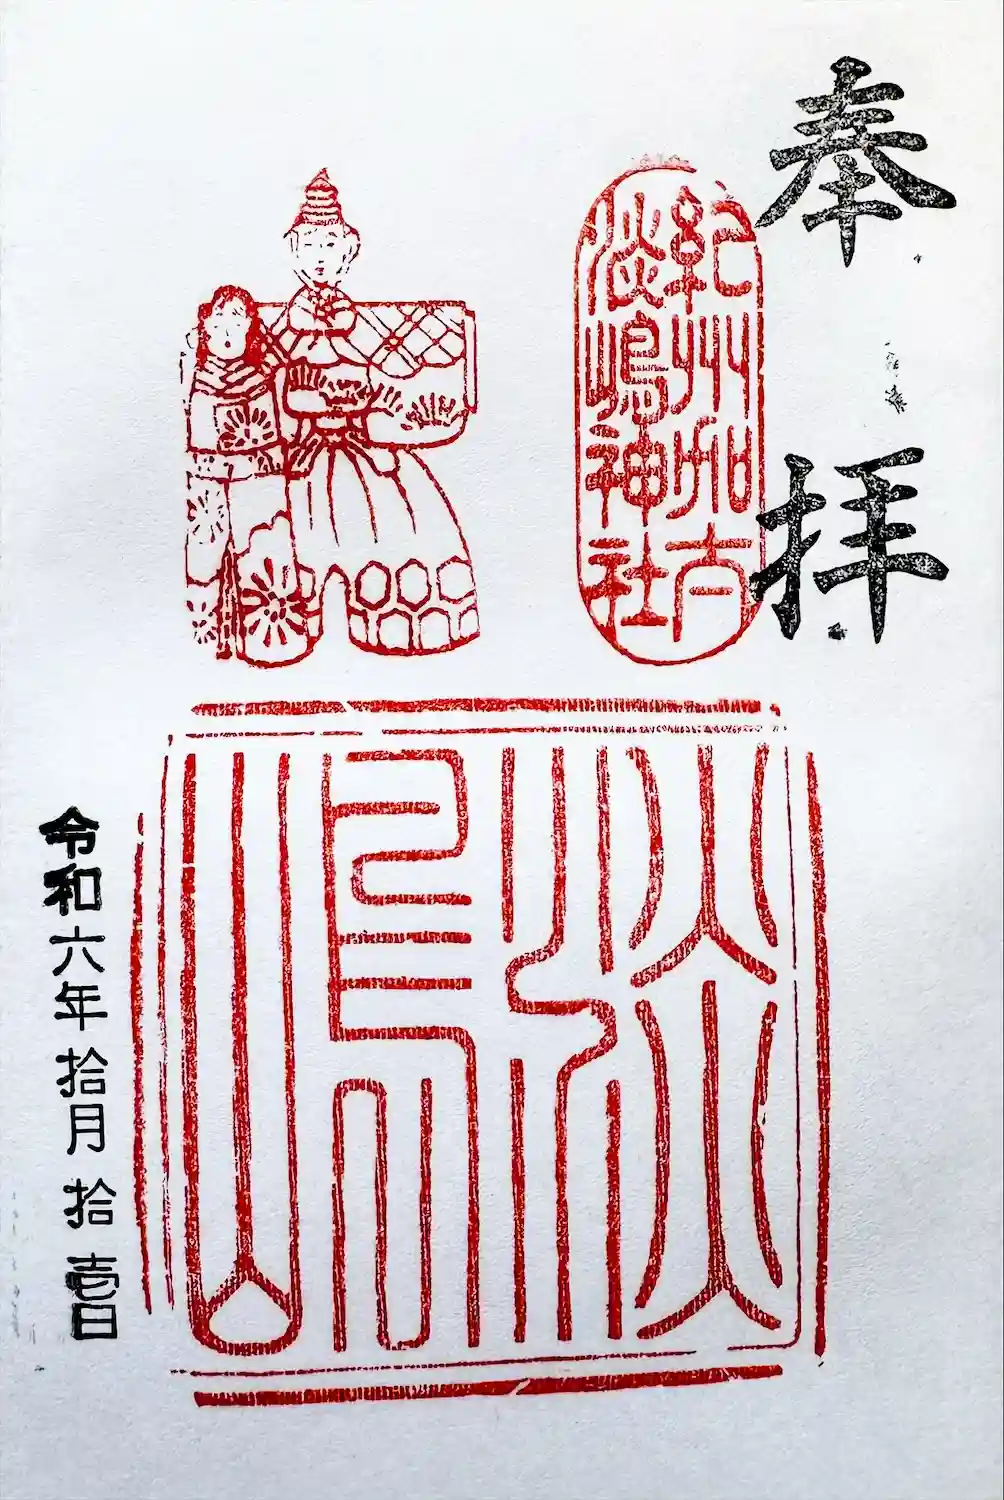 奉拝
紀州加太
淡嶋神社
淡嶋
令和六年拾月拾壱日